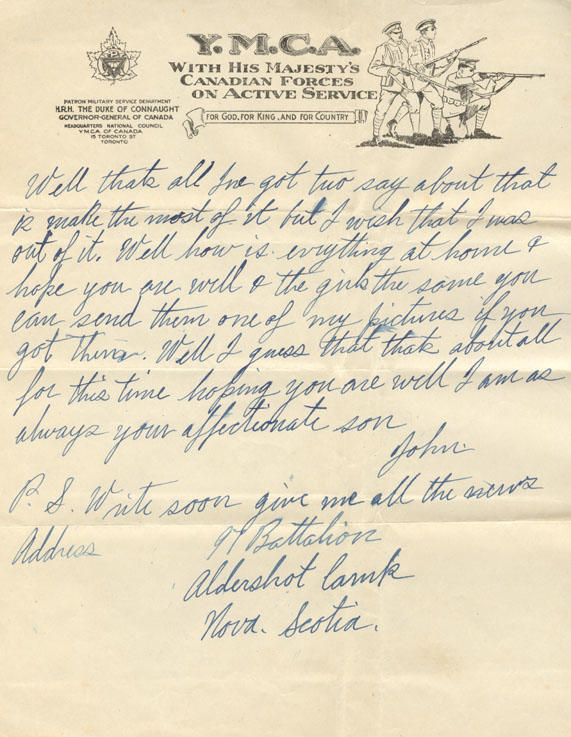 Y.M.C.A.
WITH HIS MAJESTY'S
CANADIAN FORCES
ON ACTIVE SERVICE
FOR GOD, FOR KING, AND FOR COUNTRY
PATRON MILITARY SERVICE DEPARTMENT
H.R.H. THE DUKE OF CONNAUGHT
GOVERNOR-GENERAL OF CANADA
HEADQUARTERS NATIONAL COUNCIL
Y.M.C.A. OF CANADA
15 TORONTO ST
TORONTO
Well thats all Ive got two say about that
is make the most of it but I wish that I was
out of it. Well how is evrything at home &
hope you are well & the girls the same you
can send them one of my pictures if you
got them. Well I guess that thats about all
for this time hoping you are well I am as
always your affectionate son
John.
P. S. Write soon give me all the news
Address 97 Battalion
Aldershot Camk
Nova. Scotia.